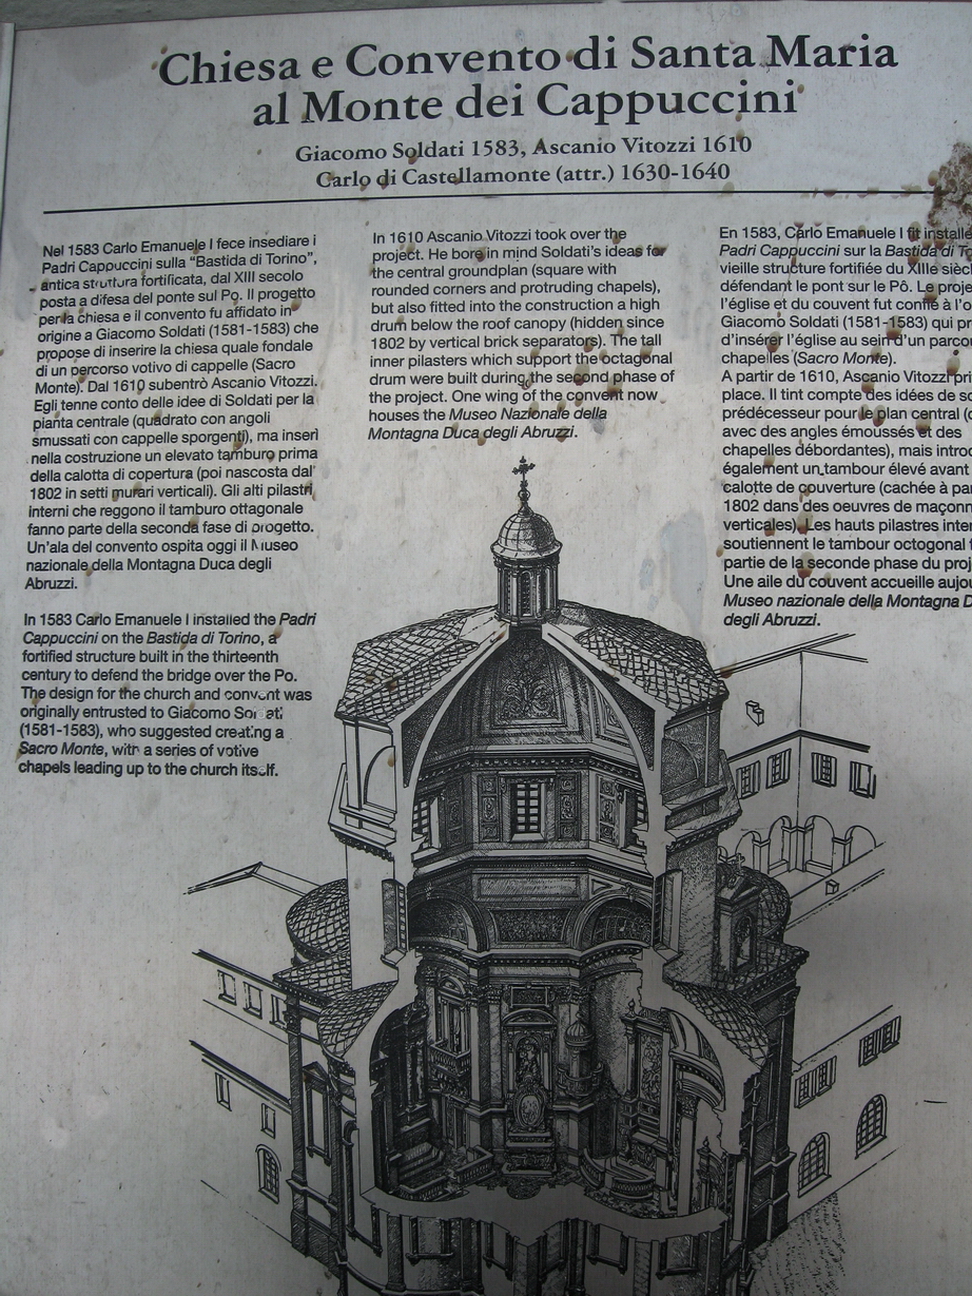 Chiesa e Convento di Santa Maria
al Monte dei Cappuccini
Giacomo Soldati 1583, Ascanio Vitozzi 1610
Carlo di Castellamonte (attr.) 1630-1640
Nel 1583 Carlo Emanuele I fece insediare i
Padri Cappuccini sulla “Bastida di Torino”,
antica struttura fortificata, dal XIII secolo
posta a difesa del ponte sul Po. Il progetto
per la chiesa e il convento fu affidato in
origine a Giacomo Soldati (1581-1583) che
propose di inserire la chiesa quale fondale
di un percorso votivo di cappelle (Sacro
Monte). Dal 1610 subentrò Ascanio Vitozzi.
Egli tenne conto delle idee di Soldati per la
pianta centrale (quadrato con angoli
smussati con cappelle sporgenti), ma inserì
nella costruzione un elevato tamburo prima
della calotta di copertura (poi nascosta dal
1802 in setti murari verticali). Gli alti pilastri
interni che reggono il tamburo ottagonale
fanno parte della seconda fase di progetto.
Un'ala del convento ospita oggi il Museo
nazionale della Montagna Duca degli
Abruzzi.
In 1583 Carlo Emanuele I installed the Padri
Cappuccini on the Bastida di Torino, a
fortified structure built in the thirteenth
century to defend the bridge over the Po.
The design for the church and convent was
originally entrusted to Giacomo Soldati
(1581-1583), who suggested creating a
Sacro Monte, with a series of votive
chapels leading up to the church itself.
In 1610 Ascanio Vitozzi took over the
project. He bore in mind Soldati's ideas for
the central groundplan (square with
rounded corners and protruding chapels),
but also fitted into the construction a high
drum below the roof canopy (hidden since
1802 by vertical brick separators). The tall
inner pilasters which support the octagonal
drum were built during the second phase of
the project. One wing of the convent now
houses the Museo Nazionale della
Montagna Duca degli Abruzzi.
En 1583, Carlo Emanuele I fit installe
Padri Cappuccini sur la Bastida di To
vieille structure fortifiée du XIIIe siècl
défendant le pont sur le Pô. Le proje
l'église et du couvent fut confié à l'o
Giacomo Soldati (1581-1583) qui pr
d'insérer l'église au sein d'un parcou
chapelles (Sacro Monte).
A partir de 1610, Ascanio Vitozzi pri
place. Il tint compte des idées de so
prédécesseur pour le plan central (c
avec des angles émoussés et des
chapelles débordantes), mais introd
également un tambour élevé avant
calotte de couverture (cachée à par
1802 dans des oeuvres de maçonn
verticales). Les hauts pilastres inter
soutiennent le tambour octogonal f
partie de la seconde phase du proj
Une aile du couvent accueille aujou
Museo nazionale della Montagna D
degli Abruzzi.